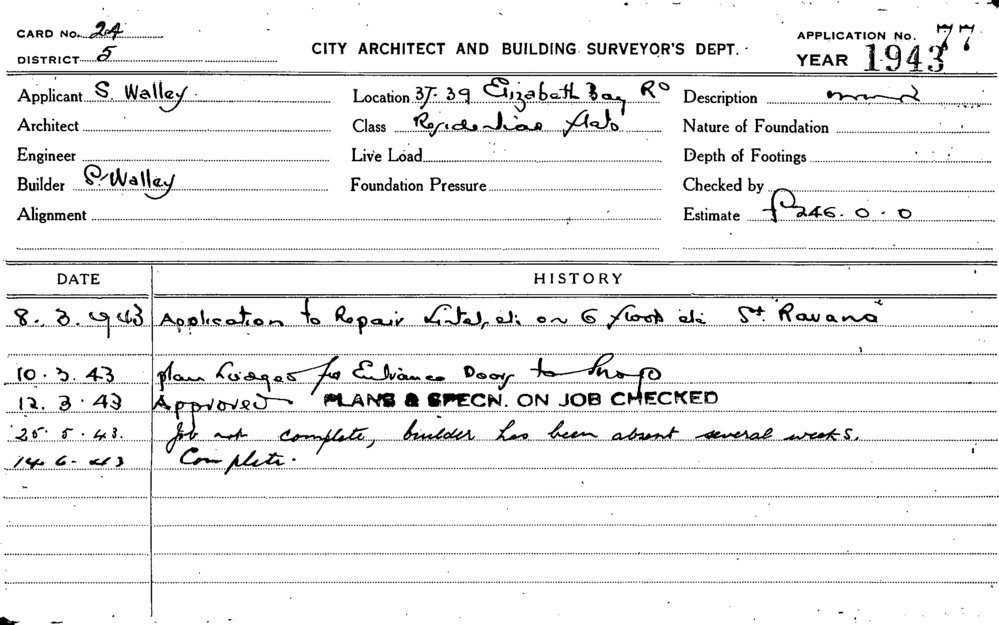 CARD No. 24
DISTRICT 5
CITY ARCHITECT AND BUILDING SURVEYOR'S DEPT.
APPLICATION No. 77
YEAR 1943
Applicant S. Walley
Location 37-39 Elizabeth Bay Rd
Description
Architect
Class Residential flats
Nature of Foundation
Engineer
Live Load
Depth of Footings
Builder S. Walley
Foundation Pressure
Checked by
Alignment
Estimate £246.0.0
DATE HISTORY
8. 3. 1943 Application to Repair Lintel, etc on 6 floor etc St.
10. 3. 43 plan Lodged for Entrance Door to Shop
12. 3. 43 Approved PLANS & SPECN. ON JOB CHECKED
25. 5. 43. Job not complete, builder has been absent several weeks.
14. 6. 43 Complete.